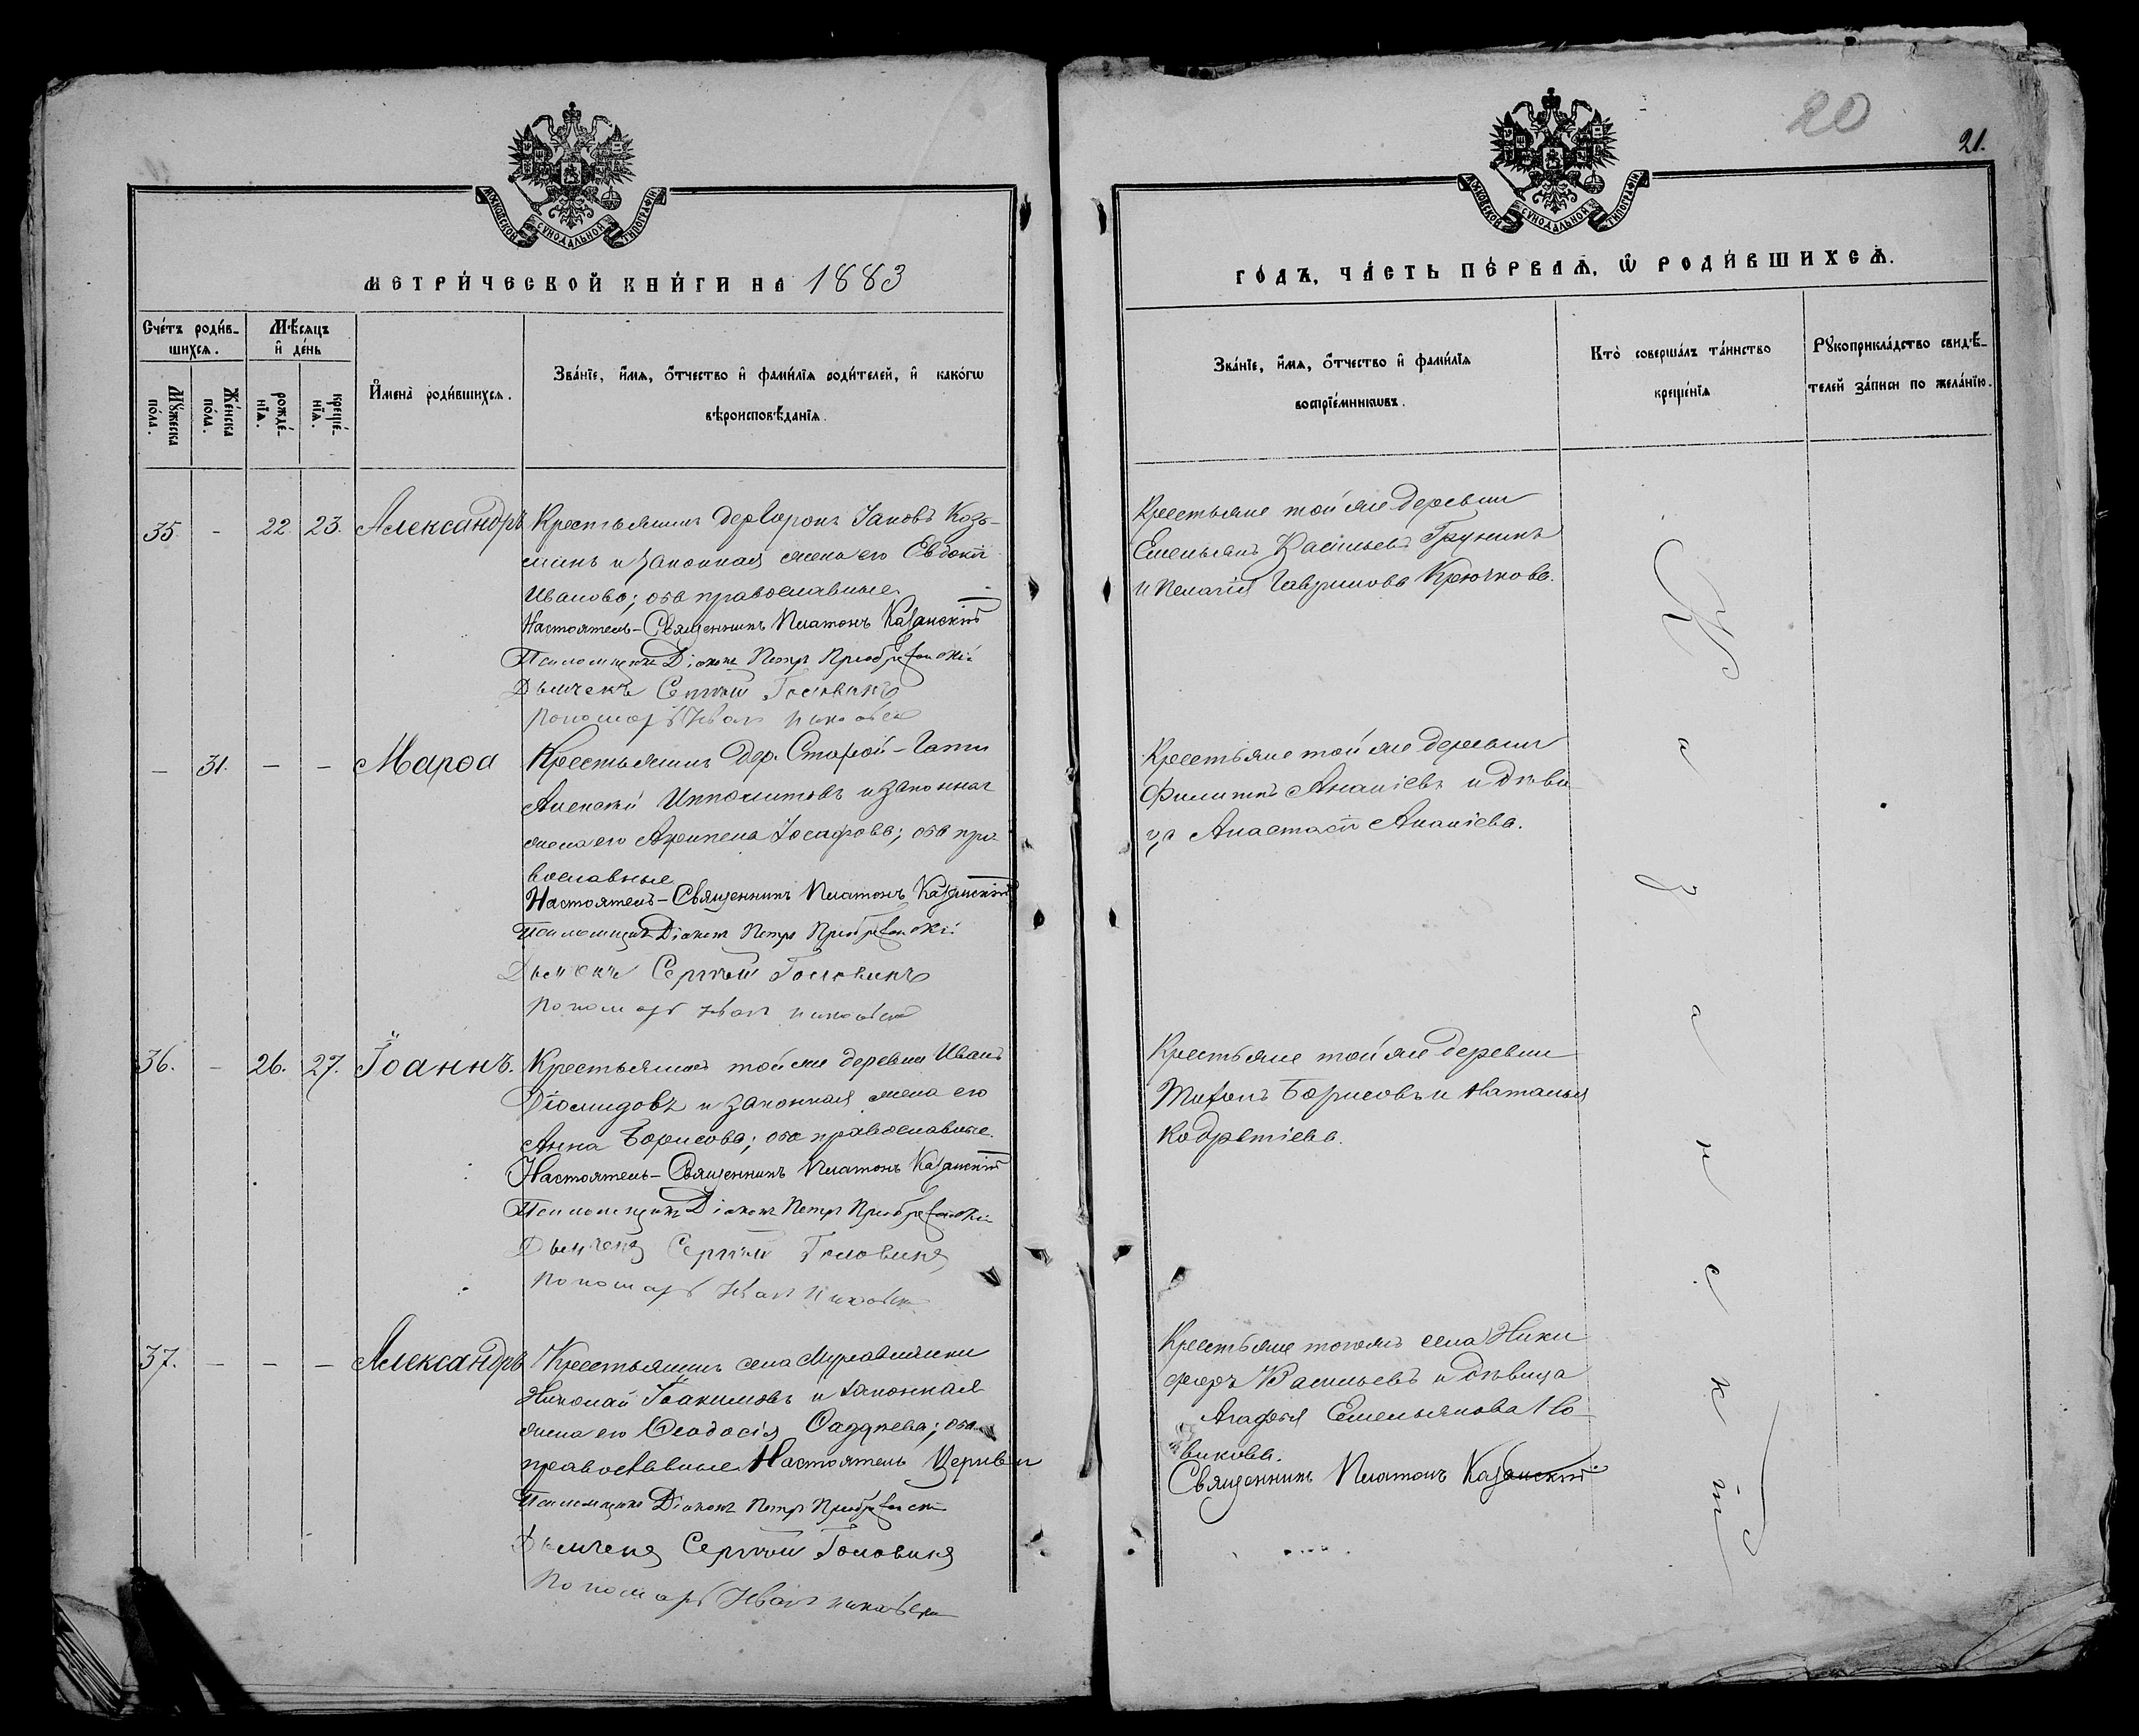 МОСКОВСКОЙ СѴНОДАЛЬНОЙ ТИПОГРАФІИ
МЕТРИ́ЧЕСКОЙ КНИ́ГИ НА 1883
Сче́тъ роди́в-
шихсѧ.
Мꙋ́жеска по́ла.
Же́нска по́ла.
Мѣ́сѧцъ
и҆ де́нь
рожде́-
нїѧ.
креще́-
нїѧ.
И҆мена̀ роди́вшихсѧ.
Зва́нїе, и҆́мѧ, ѻ҆́тчество и҆ фами́лїѧ роди́телей, и҆ како́гѡ
вѣроисповѣ́данїѧ.
35 - 22 23. Александръ
Крестьянинъ дер Іаковъ Козь-
минъ и законная жена его Евдокія
Иванова; оба православные.
Настоятель-Священникъ Платонъ Казанскій
Псаломщикъ Діаконъ Петръ Преображенскій
Дьячекъ Сергѣй Головинъ
Пономарь Иванъ
— 31. — — Марѳа
Крестьянинъ дер. Старой-Гати
Алексѣй Ипполитовъ и законная
жена его Агрипена Іосафова; оба пра-
вославные
Настоятель-Священникъ Платонъ Казанскій
Псаломщикъ Діаконъ Петръ Преображенскій
Дьячекъ Сергѣй Головинъ
Пономарь Иванъ
36. - 26. 27. Іоаннъ.
Крестьянинъ той же деревни Иванъ
Діомидовъ и законная жена его
Анна Борисова; оба православные.
Настоятель-Священникъ Платонъ Казанскій
Псаломщикъ Діаконъ Петръ Преображенскій
Дьячекъ Сергѣй Головинъ
Пономарь Иванъ
37. — — — Александръ
Крестьянинъ села
Николай Іоакимовъ и законная
жена его Ѳеодосія Ѳаддеева; оба
православные Настоятель Церкви
Псаломщикъ Діаконъ Петръ Преображенскій
Дьячекъ Сергѣй Головинъ
Пономарь Иванъ
20
21.
МОСКОВСКОЙ СѴНОДАЛЬНОЙ ТИПОГРАФІИ
ГО́ДЪ, ЧА́СТЬ ПЕ́РВАѦ, Ѡ҆ РОДИ́ВШИХСѦ.
Зва́нїе, и҆́мѧ, ѻ҆́тчество и҆ фами́лїѧ
воспрїе́мникѡвъ.
Кто̀ соверша́лъ та́инство
креще́нїѧ
Рꙋкоприкла́дство свидѣ́-
телей за́писи по жела́нїю.
Крестьяне той же деревни
Емельянъ Васильевъ Грунинъ
и Пелагія Гаврилова Крючкова.
Крестьяне той же деревни
Филиппъ Ананіевъ и дѣви-
ца Анастасія Ананіева.
Крестьяне той же деревни
Тихонъ Борисовъ и Наталья
Кодратіева.
Крестьяне тогожъ села Ники
форъ Васильевъ и дѣвица
Агафья Емельянова Но-
викова.
Священникъ Платонъ Казанскій.
Казанскій